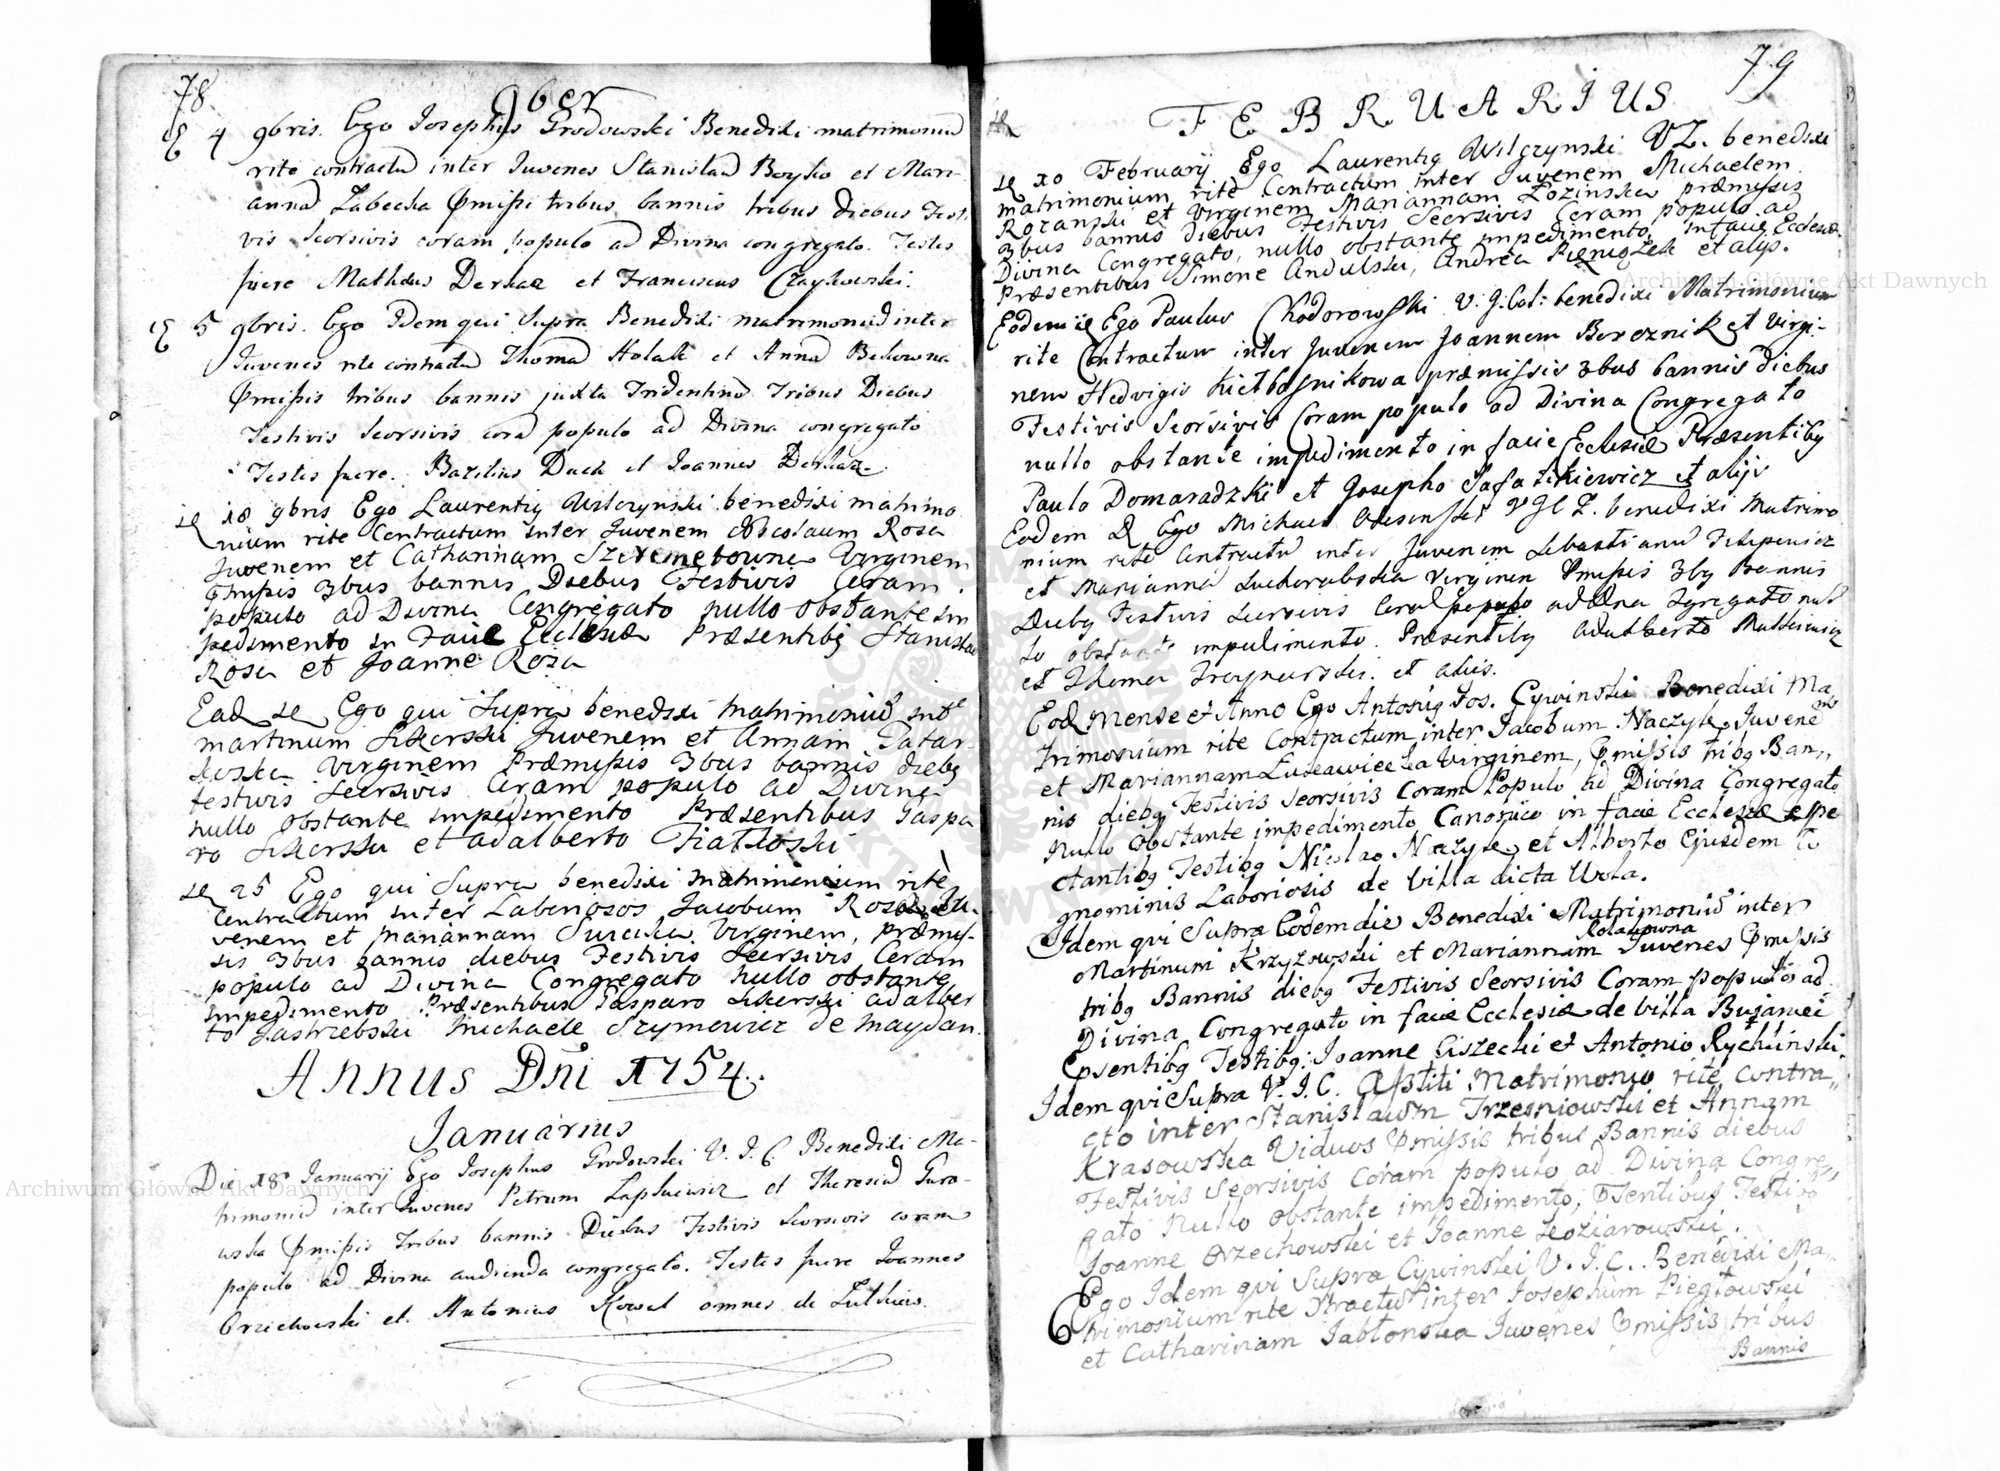 78
9ber
4 9bris. Ego Josephus Grodowski Benedixi matrimoniū
rite contractū inter Juvenes Stanislaū Boyko et Mari-
annā Zabecka Pmißi tribus bannis tribus diebus Festi
vis Seorsivis coram populo ad Divina congregato. Testes
fuere Mathæus Derkac et Franciscus Czaykowski.
5 9bris. Ego Idem qui Supra Benedixi matrimoniū inter
Juvenes rite contractū Thomā Holak et Annā
Pmißis tribus bannis juxta Tridentinū Tribus Diebus
Festivis Seorsivis corā populo ad Divina congregato
Testes fuere. Bazilius Duda et Joannes Derkaz
18 9bris Ego Laurentiq Wilczynski benedixi matrimo
nium rite Contractum inter Juvenem Rosa
Juvenem et Catharinam Virginem
Pmißis 3bus bannis Diebus Festivis Coram
populo ad Divina Congregato nullo obstante im
pedimento in Facie Ecclesiæ Præsentibq Stanislao
Rosa et Joanne Roza
Ead Ego qui Supra benedixi matrimoniū int
martinum Sikorski Juvenem et Annam Tatar-
Virginem Præmißis 3bus bannis diebq
festivis Seorsivis Coram populo ad Divina
nullo obstante impedimento Præsentibus Gaspa
ro Sikorski et adalberto Fiatkoski
25 Ego qui Supra benedixi matrimonium rite
Contractum inter Laboriosos Jacobum Rosa Ju-
venem et mariannam Virginem, præmis-
sis 3bus bannis diebus Festivis Seorsivis Coram
populo ad Divina Congregato nullo obstante
impedimento Præsentibus Gasparo Sikorski adalber
to Jastrzebski michaele Szymowicz de maydan.
Annus Dni 1754.
Januarius
Die 18 Januarij Ego Josephus Grodowski V. J. C. Benedixi Ma-
trimoniū inter Juvenes Petrum Lapkiewicz et Theresiā Guro-
wska Pmißis Tribus bannis Diebus Festivis Seorsivis coram
populo ad Divina audienda congregato. Testes fuere Joannes
Orzechowski et Antonius Kowal omnes de Lutkuw.
79
FEBRUARIUS
10 Februarij Ego Laurentiq Wilczynski VZ. benedixi
matrimonium rite Contractum inter Juvenem Michaelem
Rozanski et Virginem Mariannam Łozinska præmißis
3bus bannis diebus Festivis Seorsivis Coram populo ad
Divina Congregato, nullo obstante impedimento, in facie Ecclesiæ
Præsentibus Simone Andulski, Andrea Pieniążek et alijs.
Eodem Ego Paulus Chodorowski V. benedixi Matrimonium
rite Contractum inter Juvenem Joannem Bereznik et Virgi-
nem Hedvigis Kiełbaśnikowa præmissis 3bus bannis diebus
Festivis Seorsivis Coram populo ad Divina Congregato
nullo obstante impedimento in facie Ecclesiæ Præsentibq
Paulo Domaradzki et Josepho Safatkiewicz et alijs
Eodem Ego Michael benedixi Matrimo
nium rite Contractū inter Juvenem Sebastianū Filipowicz
et Mariannā Virginem Pmißis 3bq Bannis
Diebq Festivis Seorsivis Corā populo ad Divina Cgregato nul
lo obstante impedimento. Præsentibq Adalberto
et Thoma et alijs.
Eod Mense et Anno Ego Antoniq Jos. Cywinski Benedixi Ma,,
trimonium rite Contractum inter Jacobum Naczyk Juvenē
et Mariannam Virginem, Pmissis tribq Ban,,
nis diebq Festivis Seorsivis Coram Populo ad Divina Congregato
Nullo obstante impedimento Canonico in facie Ecclesiæ Spe
ctantibq Testibq Nicolao Naczyk et Alberto Ejusdem Co
gnominis Laboriosis de Villa dicta Wola.
Idem qvi Supra Eodem die Benedixi Matrimoniū inter
Martinum Krzyzowski et Mariannam Kolanowna Juvenes Pmissis
tribq Bannis diebq Festivis Seorsivis Coram populo ad
Divina Congregato in facie Ecclesiæ de Villa Bujaniec
Psentibq Testibq: Joanne Liszecki et Antonio Rychlinski.
Idem qvi Supra V. J. C. Aßtiti Matrimonio rite contra,,
cto inter Stanislaum Trzesniowski et Annam
Krasowska Viduos Pmissis tribus Bannis diebus
Festivis Seorsivis Coram populo ad Divina Congre,,
gato Nullo obstante impedimento, Psentibus Testibq
Joanne Orzechowski et Joanne Koziarowski.
Ego Idem qvi Supra Cywinski V. J. C. Benedixi Ma,,
trimonium rite Ctractū inter Josephum Piegłowski
et Catharinam Jabłonska Juvenes Pmissis tribus
Bannis
Archiwum Główne Akt Dawnych
Archiwum Główne Akt Dawnych